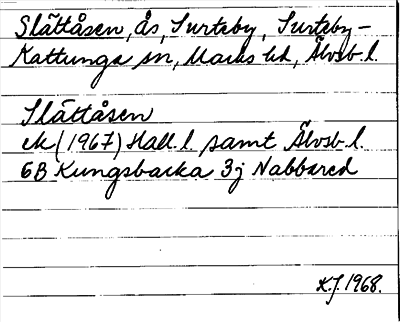 Slättåsen, ås, Surteby, Surteby-
Kattunga sn, Marks hd, Älvsb. l.
Slättåsen
ek (1967) Hall. l. samt Älvsb. l.
6B Kungsbacka 3j Nabbared
K.J. 1968.